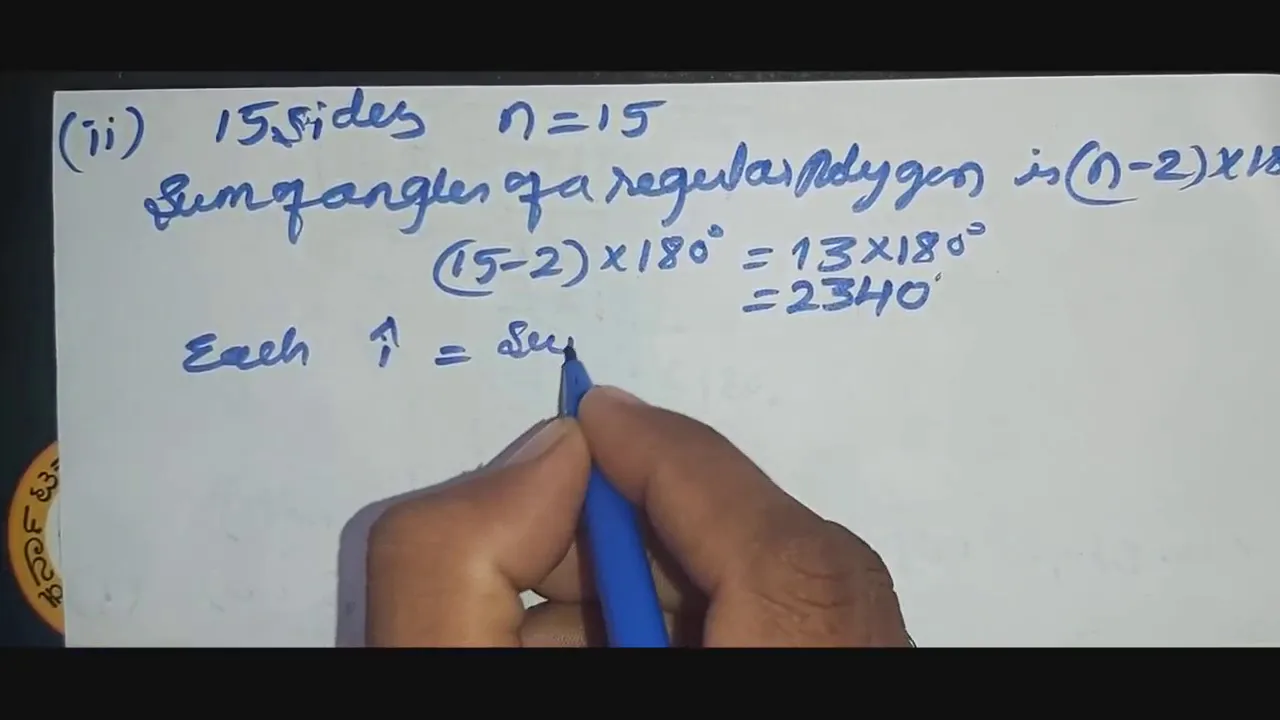 (ii) 15 Sides n=15
Sum of angles of a regular Polygon is (n-2)×18
(15-2)×180° = 13×180°
=2340°
Each î = Su